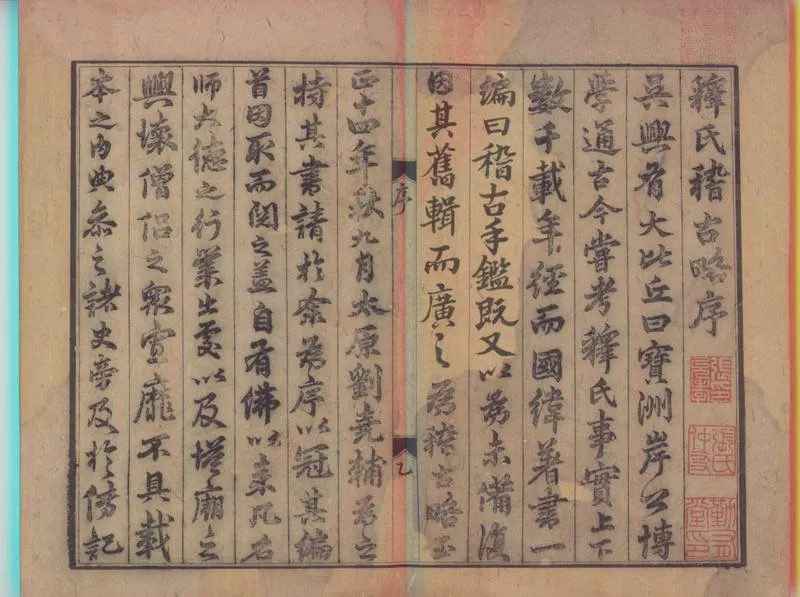 釋氏稽古略序
吳興有大比丘曰寶洲岸公博
學通古今嘗考釋氏事實上下
數千載年經而國緯著書一
編曰稽古手鑑既又以爲未備復
因其舊輯而廣之爲稽古略至
序
乙
正十四年秋九月太原劉堯輔爲之
持其書請於余爲序以冠其編
首因取而閱之蓋自有佛以來凡名
師大德之行業出處以及塔廟之
興壞僧侶之衆寡靡不具載
本之內典參之諸史旁及於傳記